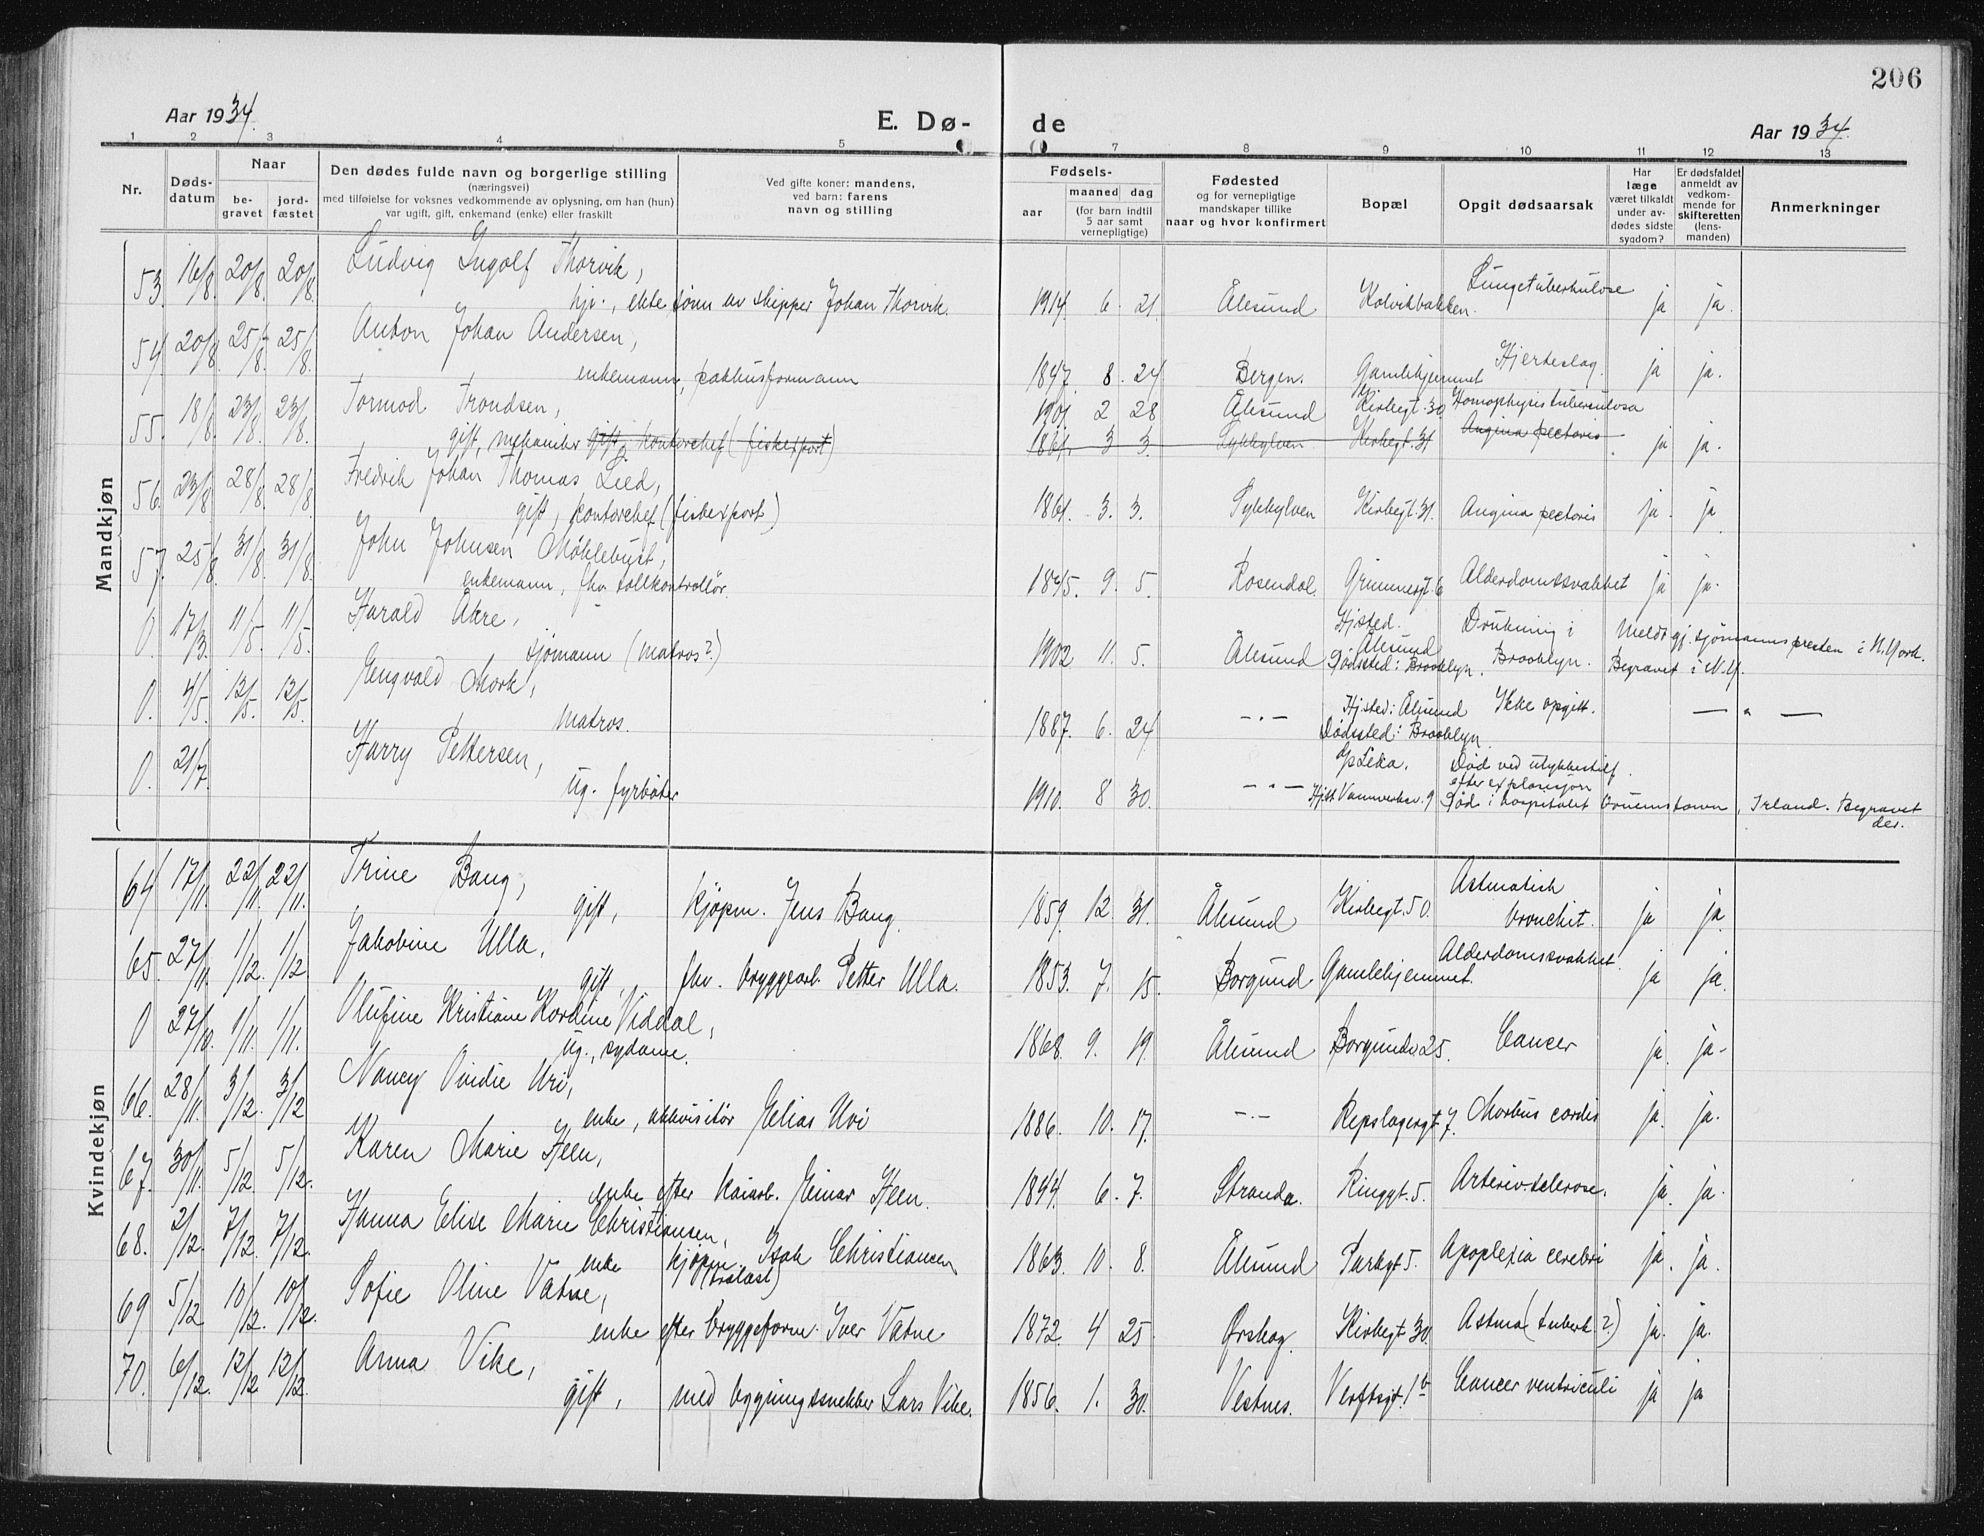 206
Aar 1934.
E. Dø-
de
Aar 1934.
1 2 3 4 5 7 8 9 10 11 12 13
Nr.
Døds-
datum
Naar
be-
gravet
jord-
fæstet
Den dødes fulde navn og borgerlige stilling
(næringsvei)
med tilføielse for voksnes vedkommende av oplysning, om han (hun)
var ugift, gift, enkemand (enke) eller fraskilt
Ved gifte koner: mandens,
ved barn: farens
navn og stilling
Fødsels-
aar
maaned
dag
(for barn indtil
5 aar samt
vernepligtige)
Fødested
og for vernepligtige
mandskaper tillike
naar og hvor konfirmert
Bopæl
Opgit dødsaarsak
Har
læge
været tilkaldt
under av-
dødes sidste
sygdom?
Er dødsfaldet
anmeldt av
vedkom-
mende for
skifteretten
(lens-
manden)
Anmerkninger
Mandkjøn
53. 16/8. 20/8. 20/8. Ludvig Ingolf Thorvik,
hjv., ekte sønn av skipper Johan Thorvik. 1914. 6. 21. Ålesund Kolvikbakken. Lungetuberkulose ja ja.
54. 20/8. 25/8. 25/8. Anton Johan Andersen,
enkemann, pakhusformann 1847. 8. 24 Bergen. Gamlehjemmet Hjerteslag. ja ja.
55. 18/8. 23/8. 23/8. Tormod Trondsen, 1901. 2 28 Ålesund Kirkegt. 30 Hæmophysis tuberculosa
gift, mekaniker gift, kontorchef (fiskexport) 1861. 3 3. Sykkylven Kirkegt. 31 Angina pectoris ja ja.
56. 23/8. 28/8. 28/8. Fredrik Johan Thomas Lied,
gift, kontorchef (fiskexport) 1861. 3. 3. Sykkylven Kirkegt. 31. Angina pectoris ja. ja
57. 25/8. 31/8. 31/8. John Johnsen Møklebust,
enkemann, fhv. tollkontrollør. 1845. 9. 5. Rosendal. Grimmergt. 6 Alderdomssvakhet ja ja.
0. 17/3. 11/5. 11/5. Harald Åkre,
sjømann (matros?) 1902 11. 5. Ålesund Hjsted. Ålesund
Dødssted: Brooklyn. Drukning i
Brooklyn. Meldt gj. sjømannspresten i N. York.
Begravet i N.Y.
0. 4/5. 12/5. 12/5. Engvald Mork,
matros. 1887. 6. 24 —"— Hjsted: Ålesund
Dødssted: Brooklyn. Ikke opgitt. — " —
0. 21/7. Harry Pettersen,
ug. fyrbøter 1910. 8 30. —"— Leka.
Hjst. 9 Død ved ulykkestilf.
efter explosjon
Død i hospitalet Queenstown, Irland. Begravet
der.
Kvindekjøn
64 17/11. 22/11. 22/11. Trine Bang,
gift, kjøpm. Jens Bang. 1859. 12. 31. Ålesund Kirkegt. 50. Astmatisk
bronchit. ja ja.
65. 27/11. 1/12. 1/12. Jakobine Ulla,
gift, fhv. bryggearb. Petter Ulla. 1853. 7. 15. Borgund Gamlehjemmet. Alderdomssvakhet. ja ja.
0 27/10. 1/11. 1/11. Olufine Kristiane Kordine Viddal,
ug., sydame. 1868. 9. 19. Ålesund Borgundv. 25. Cancer ja. ja.
66. 28/11. 3/12. 3/12 Nancy Ovidie Uri,
enke, akkvisitør Elias Uri 1886. 10. 17. —"— Repslagergt 7. Morbus cordis ja. ja.
67. 30/11. 5/12. 5/12. Karen Marie Heen,
enke efter kaiarb. Einar Heen. 1844. 6. 7. Stranda. Ringgt. 5. Arteriosclerose. ja. ja.
68. 2/12. 7/12. 7/12. Hanna Elise Marie Christiansen,
enke kjøpm. Isak Christiansen
(trelast) 1863. 10. 8. Ålesund Parkgt 5. Apoplexia cerebri ja. ja.
69 5/12 10/12. 10/12. Sofie Oline Vatne,
enke efter bryggeform. Iver Vatne 1872. 4 25. Ørskog. Kirkegt 30. Astma (tuberk?) ja. ja.
70. 6/12. 12/12 12/12. Anna Vike,
gift, med bygningssnekker Lars Vike. 1856. 1. 30. Vestnes. Verftsgt. 1b Cancer ventriculi ja ja